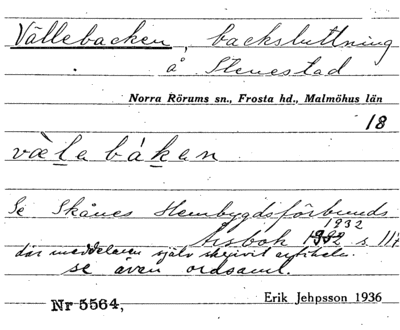 Vällebacken, backsluttning
å Stenestad
Norra Rörums sn., Frosta hd., Malmöhus län
18
væ̀la bákan
Se Skånes Hembygdsförbunds
1932
Årsbok 1932 s 117
där meddelaren själv skrivit artikeln.
se även ordsaml.
Nr 5564,
Erik Jehpsson 1936